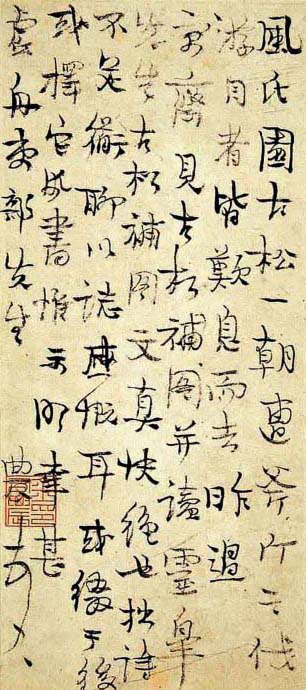 風氏園古松一朝遭斧斤之伐
游目者皆歎息而去昨過
齋見古松補圖并讀靈皋
先生古松補圖文真快絕也拙詩
不足聊以誌感慨耳或綴于後
或擇它書惟示明幸甚
虛舟吏部先生
農